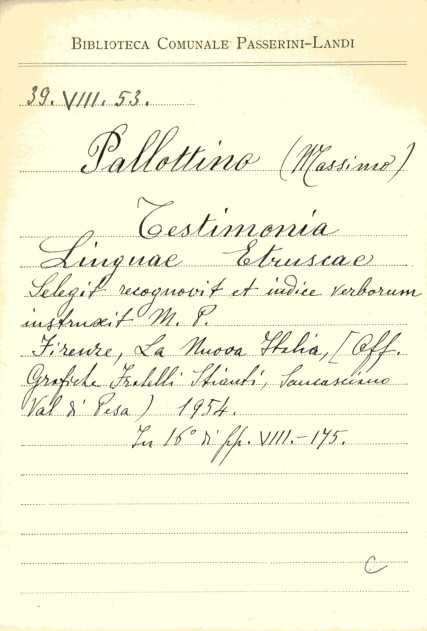 BIBLIOTECA COMUNALE PASSERINI-LANDI
39. VIII. 53.
Pallottino (Massimo)
Testimonia
Linguae Etruscae
Selegit recognovit et indice verborum
instruxit M. P.
Firenze, La Nuova Italia, [Off.
Grafiche Fratelli Stianti, Sancasciano
Val di Pesa) 1954.
In 16° di pp. VIII.-175.
C